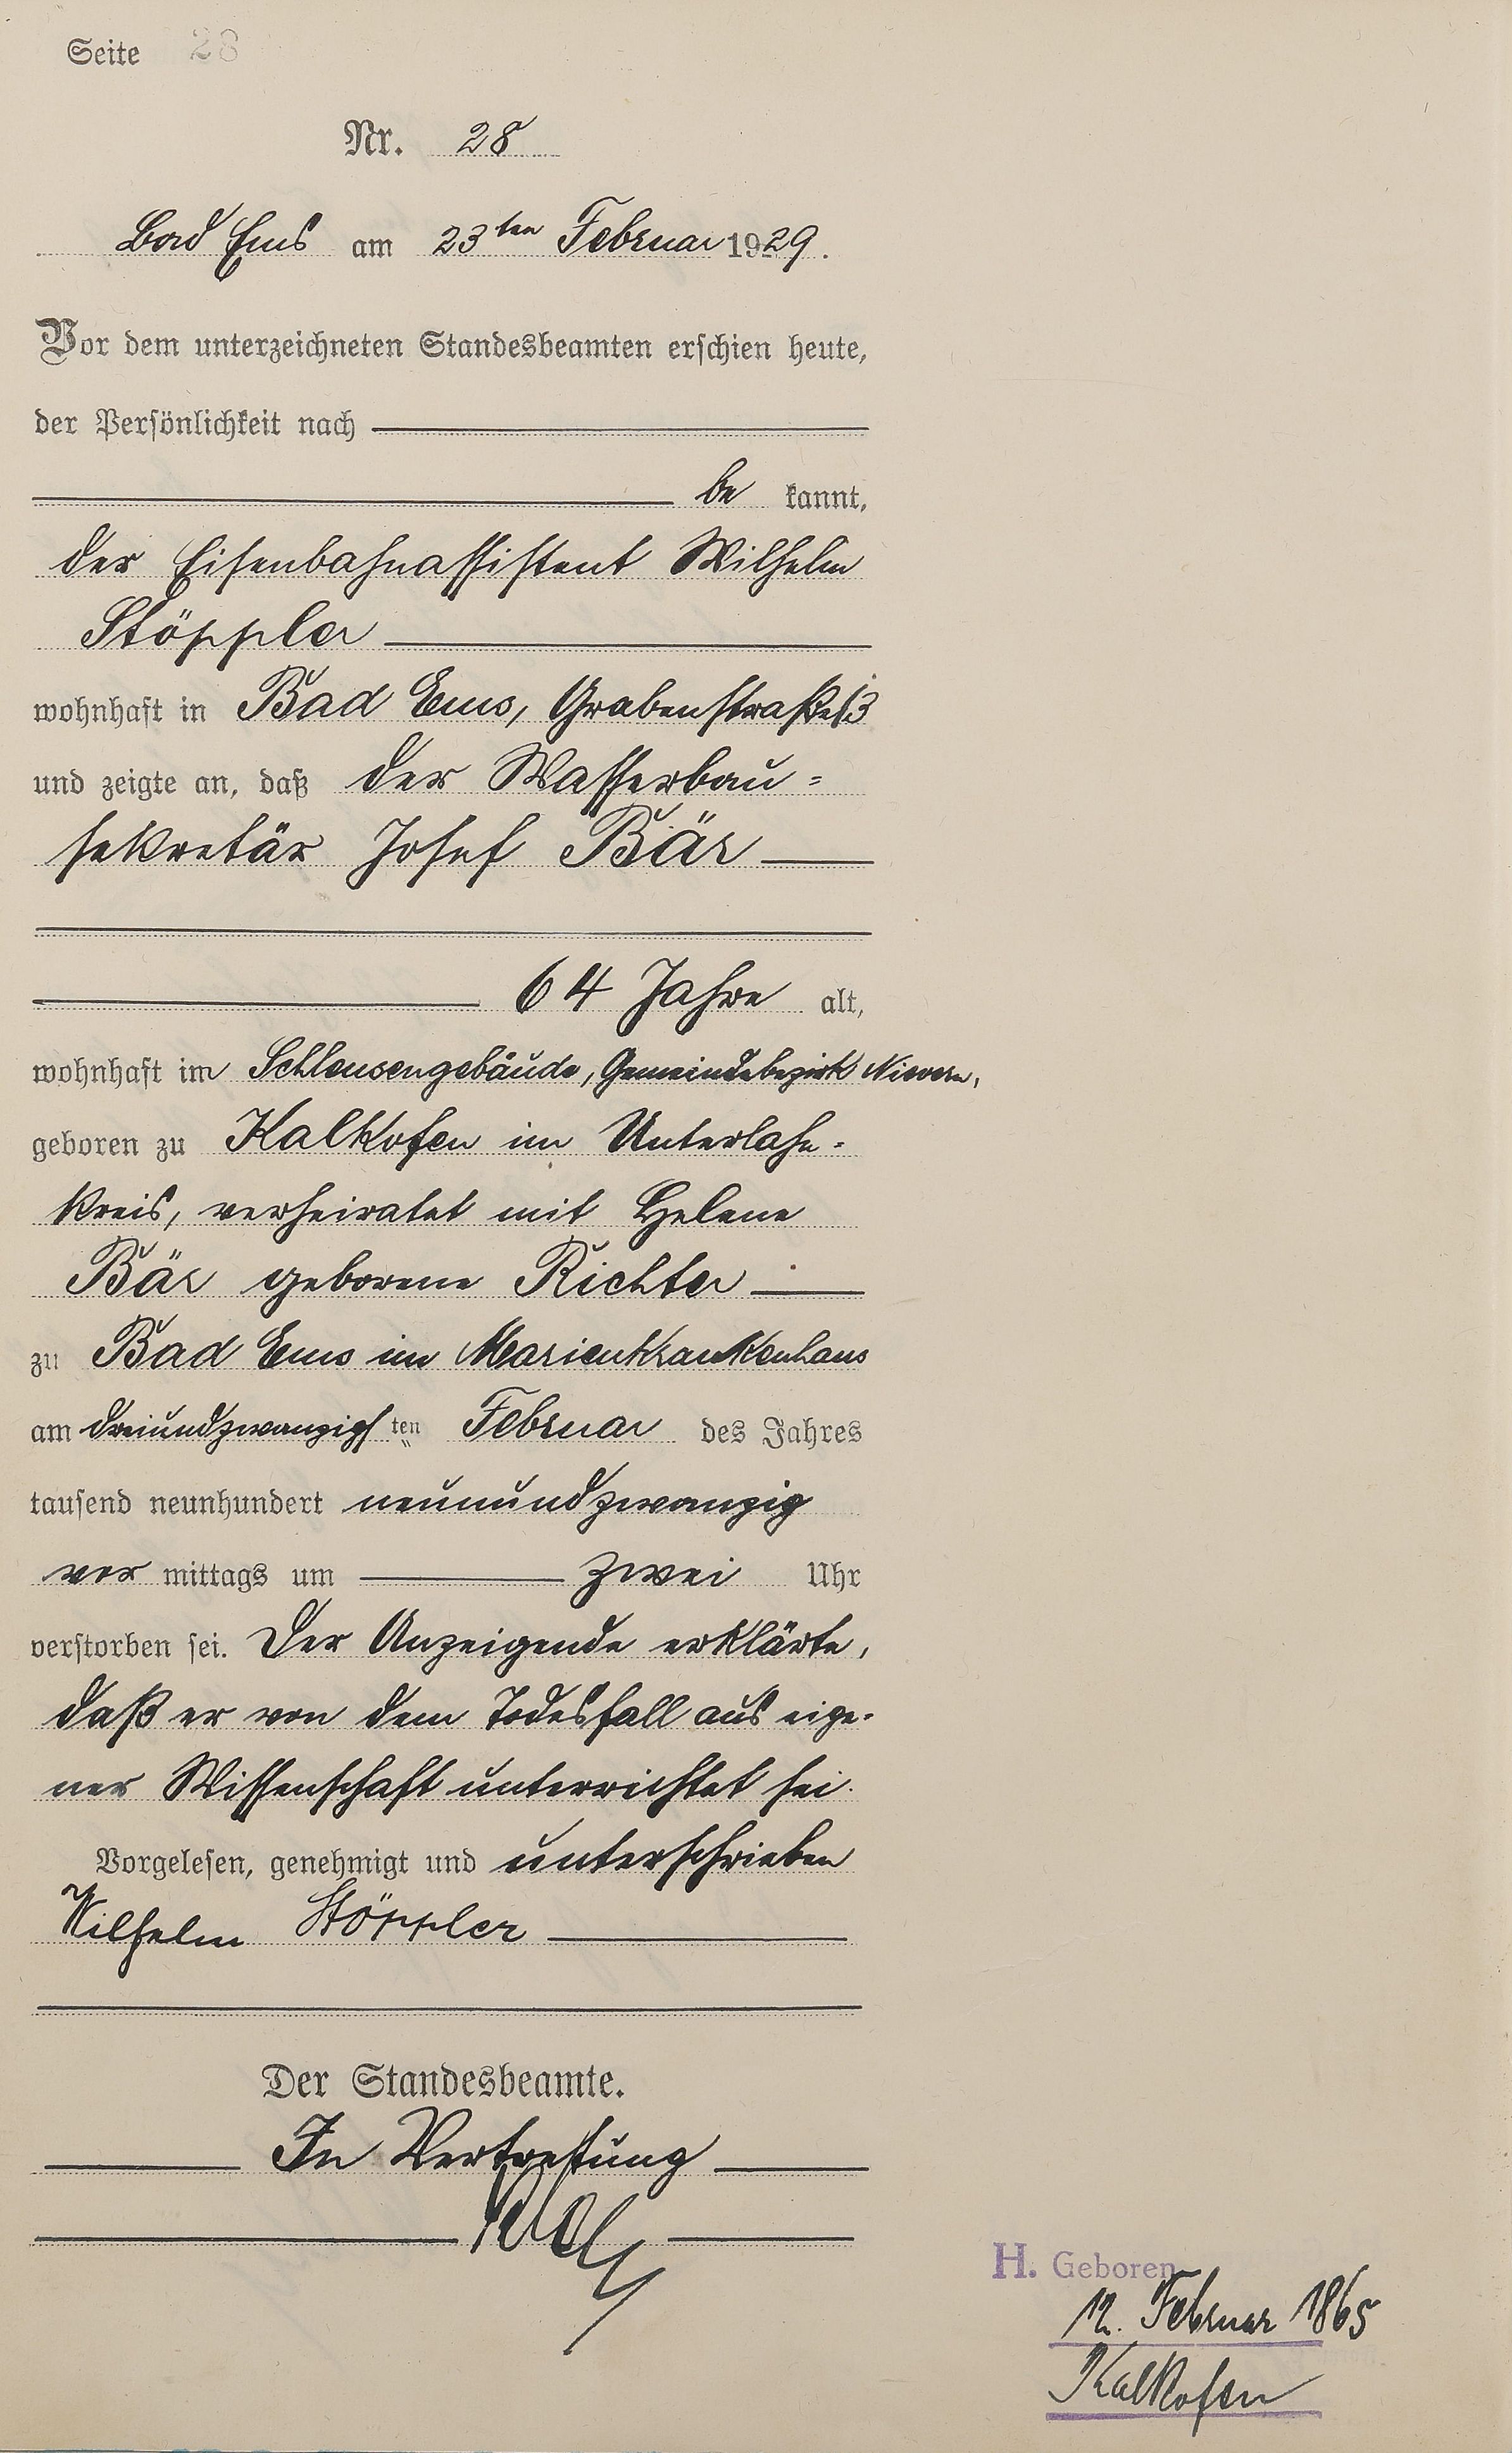 Seite 28
Nr. 28
Bad Ems am 23ten Februar 1929.
Vor dem unterzeichneten Standesbeamten erschien heute,
der Persönlichkeit nach
be kannt,
der Eisenbahnassistent Wilhelm
Stöppler
wohnhaft in Bad Ems, Grabenstraße
und zeigte an, daß der Wasserbau=
sekretär Josef Bär
64 Jahre alt,
wohnhaft im Schleusengebäude, Gemeindebezirk Nievern,
geboren zu Kalkofen im Unterlahn-
kreis, verheiratet mit Helene
Bär geborene Richter
zu Bad Ems im Marienkrankenhaus
am dreiundzwanzigsten Februar des Jahres
tausend neunhundert neunundzwanzig
vor mittags um zwei Uhr
verstorben sei. Der Anzeigende erklärte,
daß er von dem Todesfall aus eige-
ner Wissenschaft unterrichtet sei.
Vorgelesen, genehmigt und unterschrieben
Wilhelm Stöppler
Der Standesbeamte.
In Vertretung
H. Geboren
12. Februar 1865
Kalkofen